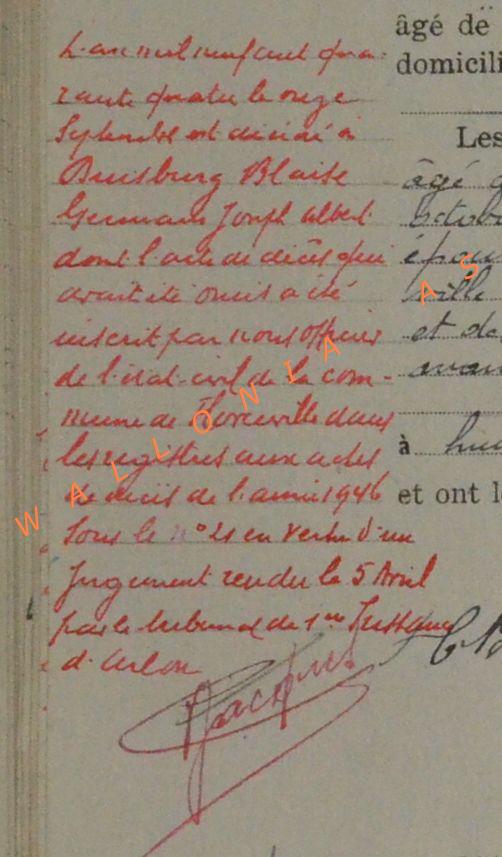 L'an mil neuf cent qua-
rante quatre le onze
Septembre est décédé à
Duisburg Blaise
Germain Joseph Albert
dont l'acte de décès qui
avait été omis a été
inscrit par nous officier
de l'état-civil de la com-
mune de Florenville dans
les registres aux actes
de décès de l'année 1946
sous le n° 21 en vertu d'un
Jugement rendu le 5 Avril
par le tribunal de 1ère Instance
d'Arlon
Jacques
âgé de
domicili
Les
âgé
octobre
épou
ville
et de
à hui
et ont l
WALLONIA AS